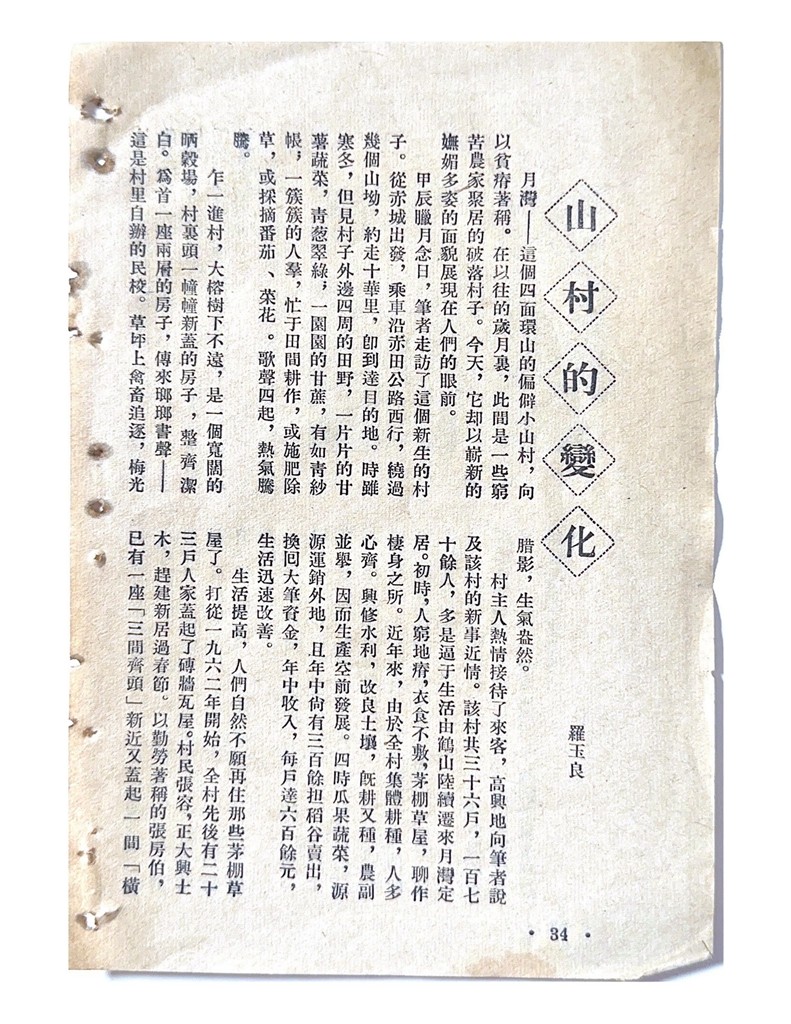 山村的變化
羅玉良
月灣——這個四面環山的偏僻小山村，向
以貧瘠著稱。在以往的歲月裏，此間是一些窮
苦農家聚居的破落村子。今天，它却以嶄新的
嫵媚多姿的面貌展現在人們的眼前。
甲辰臘月念日，筆者走訪了這個新生的村
子。從赤城出發，乘車沿赤田公路西行，繞過
幾個山坳，約走十華里，卽到達目的地。時雖
寒冬，但見村子外邊四周的田野，一片片的甘
薯蔬菜，青葱翠綠，一園園的甘蔗，有如青紗
帳，一簇簇的人羣，忙于田間耕作，或施肥除
草，或採摘番茄、菜花。歌聲四起，熱氣騰
騰。
乍一進村，大榕樹下不遠，是一個寬闊的
晒穀場，村裏頭一幢幢新蓋的房子，整齊潔
白。爲首一座兩層的房子，傳來瑯瑯書聲——
這是村里自辦的民校。草坪上禽畜追逐，梅光
腊影，生氣盎然。
村主人熱情接待了來客，高興地向筆者說
及該村的新事近情。該村共三十六戶，一百七
十餘人，多是逼于生活由鶴山陸續遷來月灣定
居。初時，人窮地瘠，衣食不敷，茅棚草屋，聊作
棲身之所。近年來，由於全村集體耕種，人多
心齊。興修水利，改良土壤，旣耕又種，農副
並舉，因而生產空前發展。四時瓜果蔬菜，源
源運銷外地，且年中尙有三百餘担稻谷賣出，
換回大筆資金，年中收入，每戶達六百餘元，
生活迅速改善。
生活提高，人們自然不願再住那些茅棚草
屋了。打從一九六二年開始，全村先後有二十
三戶人家蓋起了磚牆瓦屋。村民張容，正大興土
木，趕建新居過春節。以勤勞著稱的張房伯，
已有一座「三間齊頭」新近又蓋起一間「橫
· 34 ·